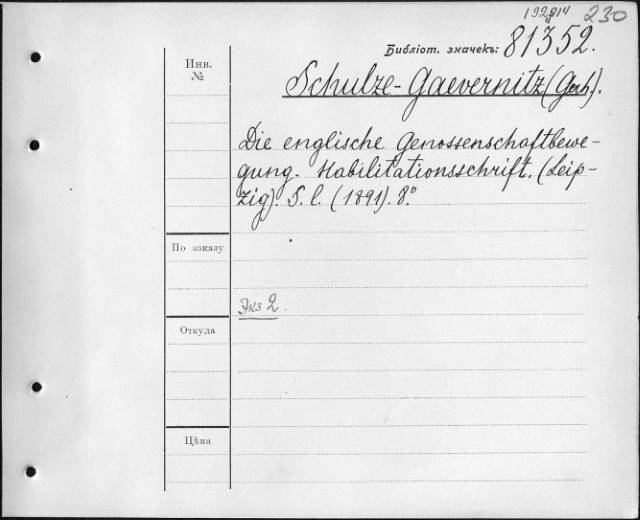 192914 230
Библіот. значекъ: 81352.
Инв.
№
Schulze-Gaevernitz (Gerh.).
Die englische Genossenschaftbewe-
gung. Habilitationsschrift. (Leip-
zig). S. l. (1891). 8°
По заказу
Экз 2.
Откуда
Цѣна